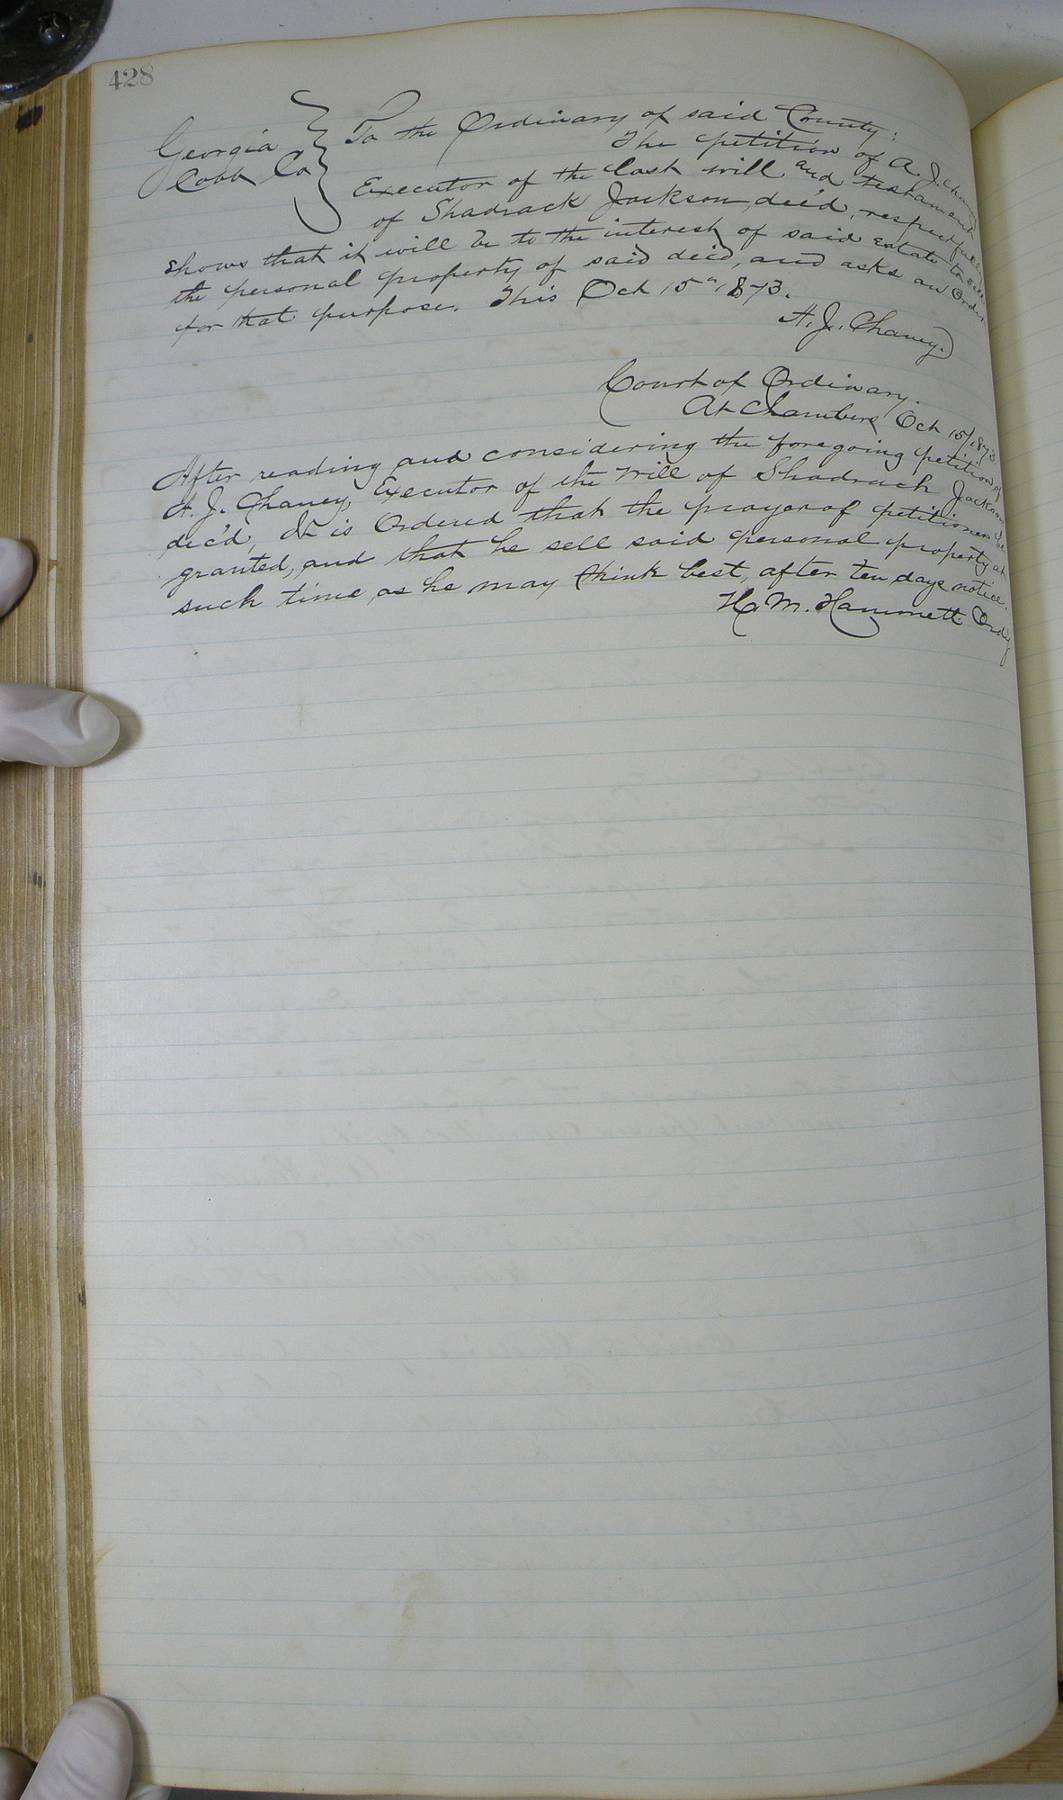 428
Georgia } To the Ordinary of said County:
Cobb Co } The petition of A. J. Chaney
Executor of the last will and testament
of Shadrack Jackson, dec'd, respectfully
shows that it will be to the interest of said estate to sell
the personal property of said dec'd, and asks an Order
for that purpose. This Oct 15th, 1873.
A. J. Chaney.
Court of Ordinary.
At Chambers Oct 15/1873
After reading and considering the foregoing petition of
A. J. Chaney, Executor of the Will of Shadrach Jackson
dec'd, It is Ordered that the prayer of petitioner be
granted, and that he sell said personal property at
such time, as he may think best, after ten days notice.
H. M. Hammett Ord'y